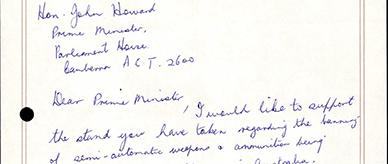 Hon. John Howard
Prime Minister,
Parliament House.
Canberra A.C.T. 2600
Dear Prime Minister,
I would like to support
the stand you have taken regarding the banning
of semi-automatic weapons & ammunition being
Australia